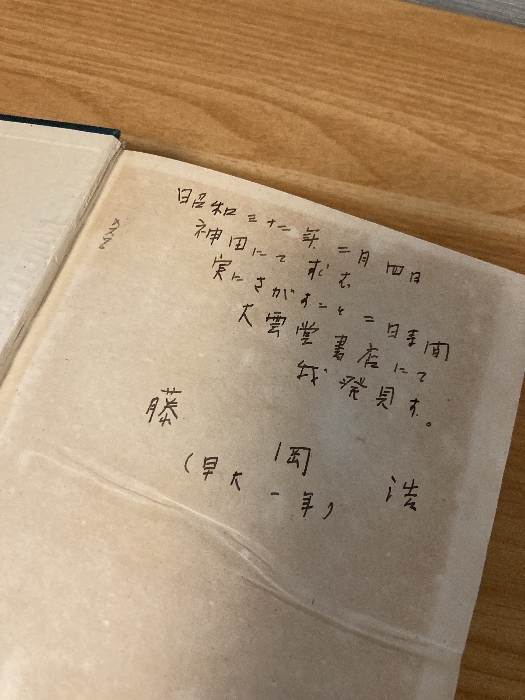 昭和三十二年 二月 四日
神田にて 求む
実にさがすこと 二日時間
大雲堂書店にて
我発見す。
藤岡 浩
(早大一年)